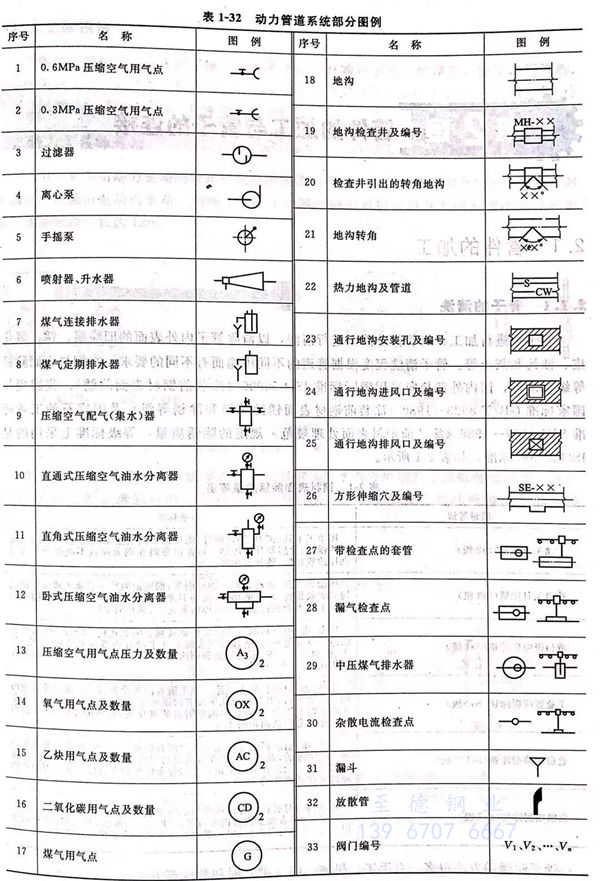 表 1-32 动力管道系统部分图例
序号 名 称 图 例
1 0.6MPa 压缩空气用气点
2 0.3MPa 压缩空气用气点
3 过滤器
4 离心泵
5 手摇泵
6 喷射器、升水器
7 煤气连接排水器
8 煤气定期排水器
9 压缩空气配气(集水)器
10 直通式压缩空气油水分离器
11 直角式压缩空气油水分离器
12 卧式压缩空气油水分离器
13 压缩空气用气点压力及数量 A3 2
14 氧气用气点及数量 OX 2
15 乙炔用气点及数量 AC 2
16 二氧化碳用气点及数量 CD 2
17 煤气用气点 G
序号 名 称 图 例
18 地沟
19 地沟检查井及编号 MH-××
20 检查井引出的转角地沟 ××°
21 地沟转角 ××°
22 热力地沟及管道 S CW
23 通行地沟安装孔及编号
24 通行地沟进风口及编号
25 通行地沟排风口及编号
26 方形伸缩穴及编号 SE-××
27 带检查点的套管
28 漏气检查点
29 中压煤气排水器
30 杂散电流检查点
31 漏斗
32 放散管
33 阀门编号 V1、V2、…、Vn
至德钢业
139 6707 6667